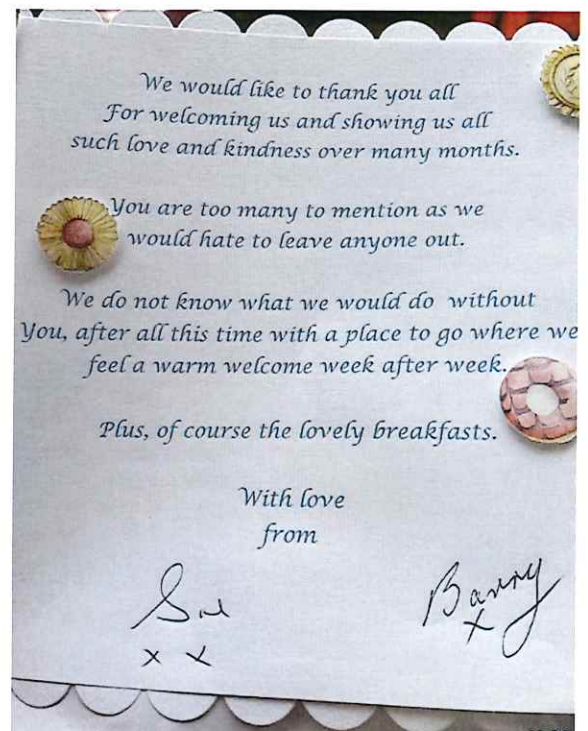 We would like to thank you all
For welcoming us and showing us all
such love and kindness over many months.
You are too many to mention as we
would hate to leave anyone out.
We do not know what we would do without
You, after all this time with a place to go where we
feel a warm welcome week after week.
Plus, of course the lovely breakfasts.
With love
from
Sue Barry
x x x